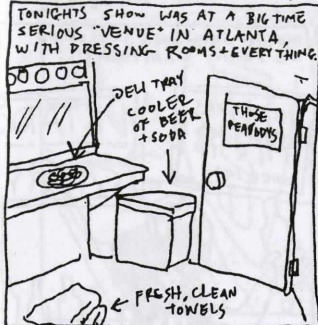 TONIGHTS SHOW WAS AT A BIG TIME
SERIOUS "VENUE" IN ATLANTA,
WITH DRESSING ROOMS + EVERYTHING.
DELI TRAY
COOLER
OF BEER
+ SODA
THOSE
PEABODYS
FRESH, CLEAN
TOWELS